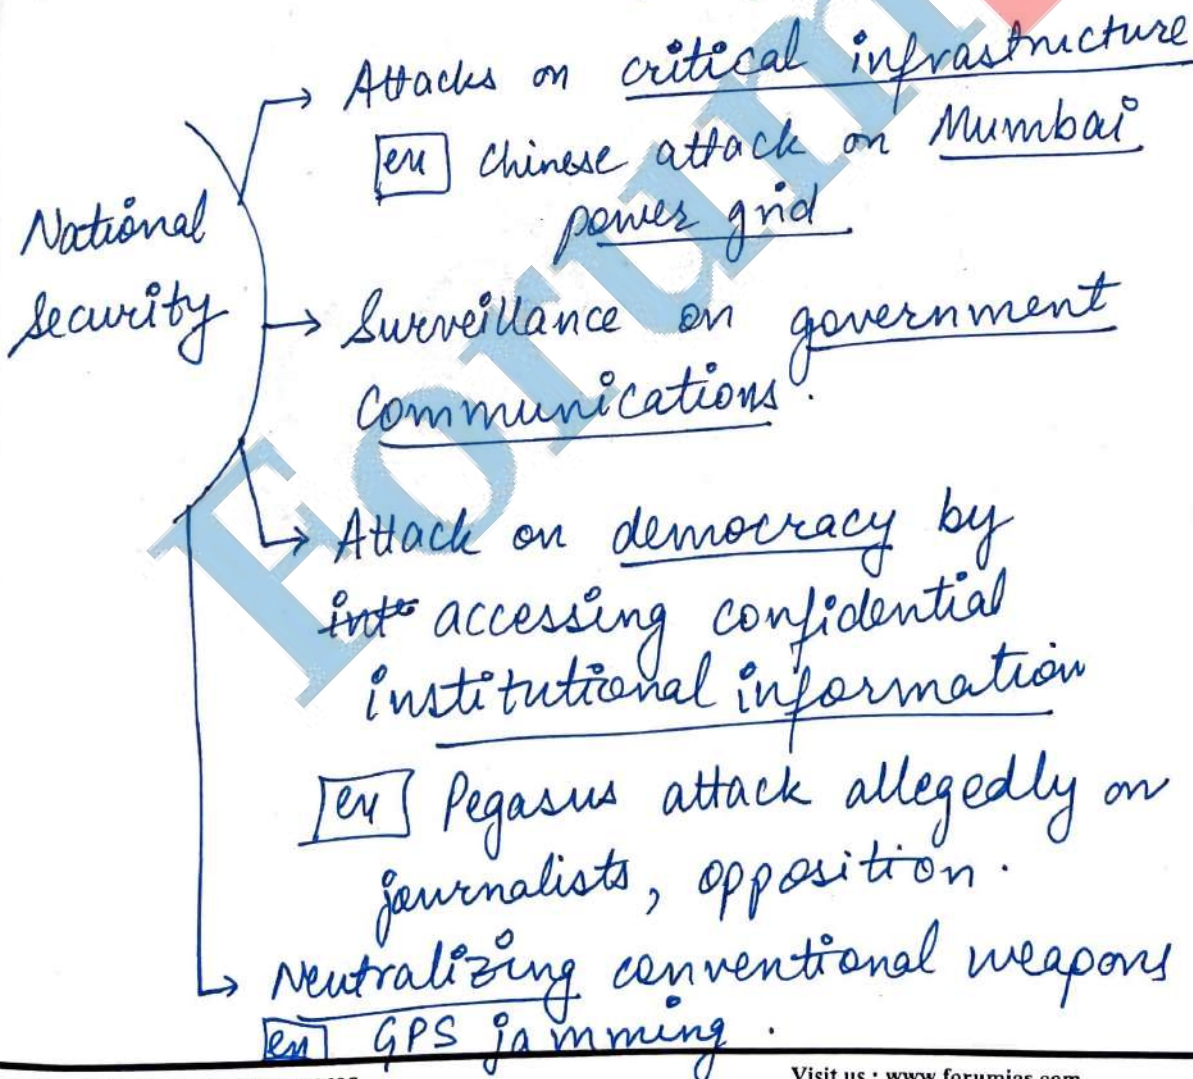 Attacks on critical infrastructure
ex Chinese attack on Mumbai
power grid
National
Security
Surveillance on government
communications.
Attack on democracy by
accessing confidential
institutional information
ex Pegasus attack allegedly on
journalists, opposition.
Neutralizing conventional weapons
ex GPS jamming.
Forum
Visit us : www.forumias.com